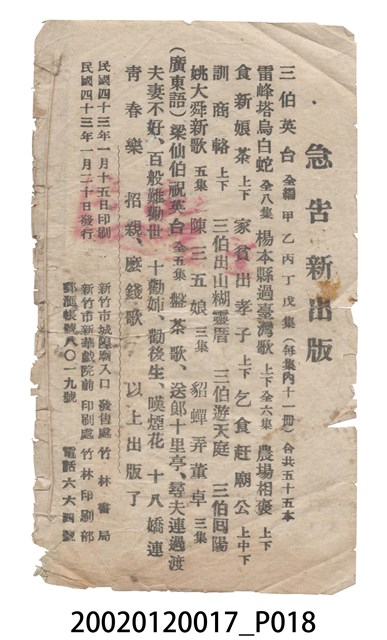 急告新出版
三伯英台 全編 甲乙丙丁戊集（每集內十一冊）合共五十五本
雷峰塔烏白蛇 全八集 楊本縣過臺灣歌 上下全六集 農場相褒 上下
食新娘茶 上下 家貧出孝子 上下 乞食趕廟公 上中下
訓商輅 上下 三伯出山糊靈厝 三伯遊天庭 三伯回陽
姚大舜新歌 五集 陳三五娘 三集 貂蟬弄董卓 三集
（廣東語）梁仙伯祝英台 全五集 盤茶歌、送郞十里亭、尋夫連過渡
夫妻不好、百般難勸世 十勸姉、勸後生、嘆煙花 十八嬌連
靑春樂 招親、麽錢歌 以上出版了
民國四十三年一月十五日印刷
民國四十三年一月二十日發行
新竹市城隍廟入口 發售處 竹林書局
新竹市新華戲院前 印刷處 竹林印刷部
郵滙帳號八〇一九號 電話六六四號
20020120017_P018